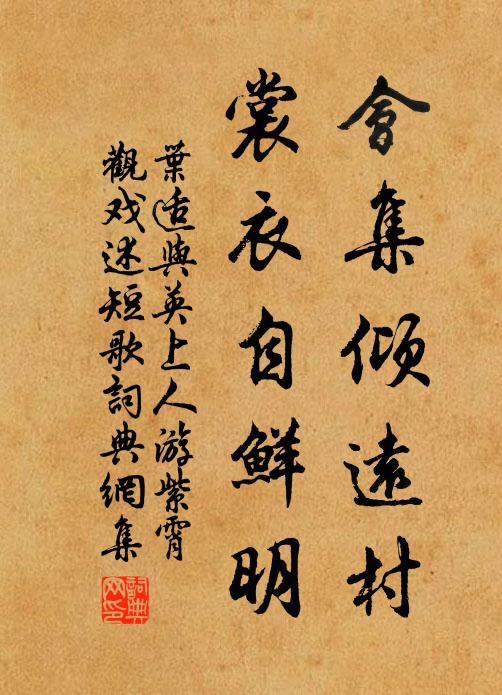 會集傾遠村
裳衣自鮮明
葉适與英上人游紫霄
觀戏述短歌詞典網集
詞典網印